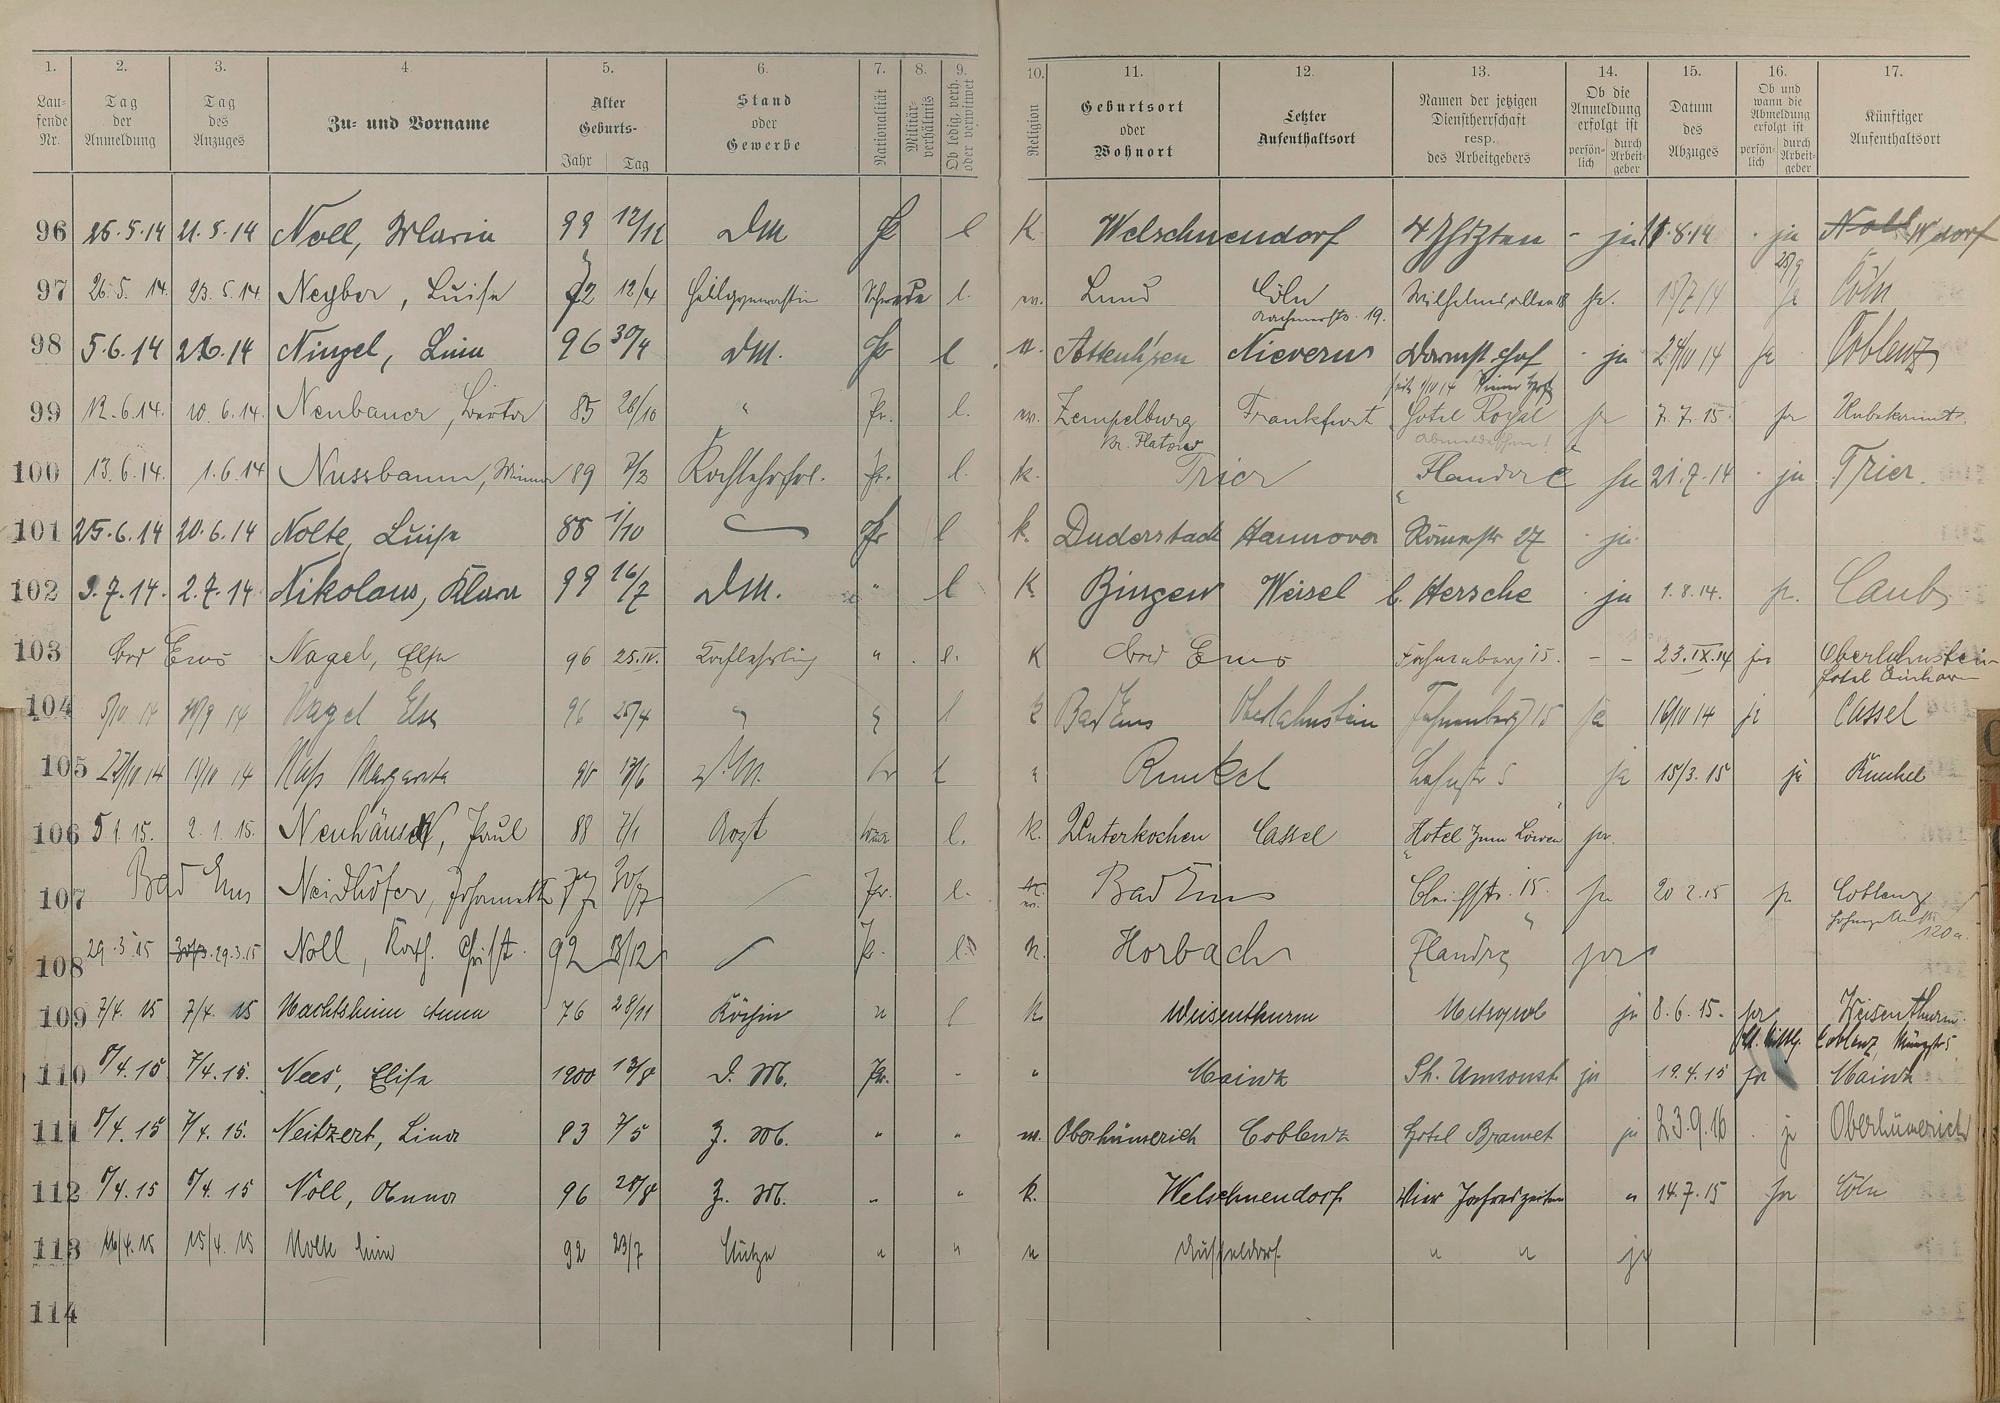 1. 2. 3. 4. 5. 6. 7. 8. 9. 10. 11. 12. 13. 14. 15. 16. 17.
Lau-fende Nr. Tag der Anmeldung Tag des Anzuges Zu- und Vorname Alter Geburts- Jahr Tag Stand oder Gewerbe Nationalität Militär-verhältnis Ob ledig, verh. oder verwitwet Religion Geburtsort oder Wohnort Letzter Aufenthaltsort Namen der jetzigen Dienstherrschaft resp. des Arbeitgebers Ob die Anmeldung erfolgt ist persön-lich durch Arbeit-geber Datum des Abzuges Ob und wann die Abmeldung erfolgt ist persön-lich durch Arbeit-geber Künftiger Aufenthaltsort
96 26.5.14 21.5.14 Noll, Maria 99 12/11 DM Pr l K Welschnendorf 4 Jhrzten - ja 8.14 ja Noll W dorf
97 26.5.14. 23.5.14. Neyber, Luise 72 12/4 Schwede l. w. Lund Cöln Aachenerstr. 19. Wilhelmsallee 18 ja. 15/7 14 ja Cöln
98 5.6.14 2.6.14 Ninzel, Lina 96 30/4 DM. Pr l Nievern Darmst. Hof ja 24/11 14 ja Coblenz
99 12.6.14. 10.6.14. Neubauer, 85 28/10 " Pr. l. w. Zempelburg Kr. Flatow Frankfurt Hotel Royal ja 7.7.15 ja Unbekannt.
100 13.6.14. 1.6.14 Nussbaum, Minna 89 7/2 Kochlehrfrl. Pr. l. k. Trier Flandre ja 21.7.14 ja Trier.
101 25.6.14 20.6.14 Nolte, Luise 88 1/10 Pr l k. Duderstadt Hannover Römerstr 27 ja
102 3.7.14. 2.7.14 Nikolaus, Klara 99 16/7 DM. " l K. Bingen Weisel b. Hersche ja 1.8.14. ja. Caub
103 Bad Ems Nagel, Else 96 25.IV. Kochlehrling " l. K Bad Ems Fahnenberg 15. - - 23.IX.14 ja Oberlahnstein Hotel Einhorn
104 5/10 14 30/9 14 Nagel Else 96 25/4 l k Bad Ems Oberlahnstein Fahnenberg 15 ja 16/10 14 ja Cassel
105 14 14 Naß Margareta 90 13/6 D.M. Pr l Runkel Lahnstr 5 ja 15/3.15 ja Runkel
106 5 1.15. 2.1.15. Neuhäuser, Paul 88 7/1 Arzt l. K. Unterkochen Cassel Hotel zum Löwen ja.
107 Bad Ems Neidhöfer, Johannette 77 30/7 Pr. l. Bad Ems Bleichstr. 15. ja 20 2.15 ja Coblenz 120a.
108 29.3.15 29.3.15 Noll, Kath. Christ. 92 18/12 Pr. l. K. Horbach Flandre ja
109 7/4. 15 7/4. 15 Nachtsheim Anna 76 28/11 Köchin " l k. Weisenthurm Metropol ja 8.6.15. ja Weisenthurm.
Coblenz,
110 8/4.15 7/4.15. Nees, Elise 1900 13/8 D. M. Pr. - " Mainz Ph. Umsonst ja 19.4.15 ja Mainz
111 8/4.15 7/4.15. Neitzert, Lina 93 7/5 Z. M. " " w. Oberhümerich Coblenz Hotel Bramet ja 23.9.16 ja Oberhümerich
112 8/4.15 8/4.15 Noll, Anna 96 28/8 Z. M. " " k. Welschnendorf. Vier Jahreszeiten " 14.7.15 ja Cöln
113 16/4.15 15/4.15 92 23/7 Stütze " " " Düsseldorf " " ja
114